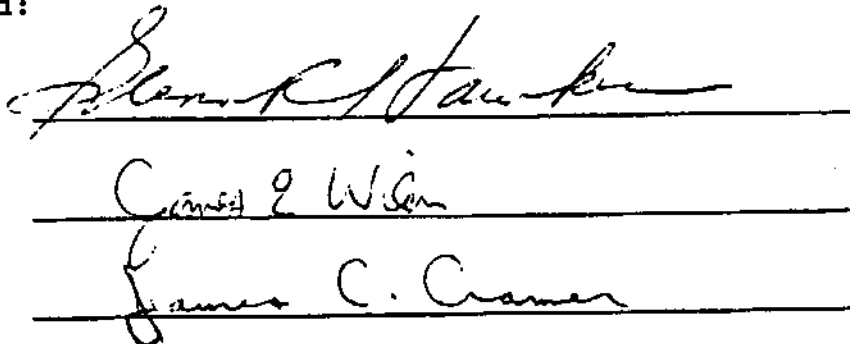 Glenn R Hawkins
James E Wilson
James C. Cramer